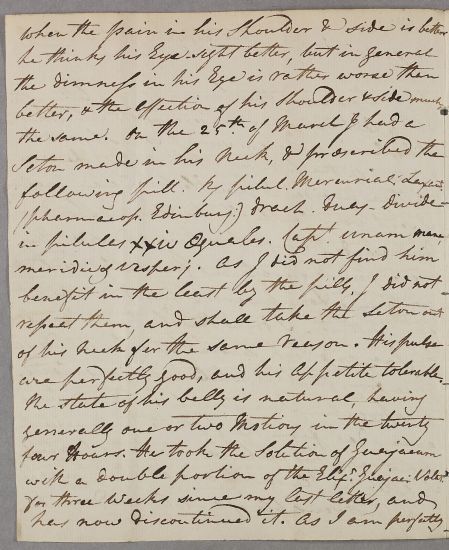 when the pain in his Shoulder & side is better
he thinks his Eye sight better, but in general
the dimness in his Eye is rather worse than
better, & the affection of his Shoulder & side much
the same. On the 25th of March I had a
Seton made in his Neck, & prescribed the
following pill. Rx pilul. Mercurial. Laxant.
(pharmacop. Edinburg:) drach. duas. divide
in pilulas xxiv Equales. Capt. unam mane
meridie & vesperj. As I did not find him
benefit in the least by the pills, I did not
repeat them, and shall take the Seton out
of his Neck for the same reason. His pulse
are perfectly good, and his Appetite tolerable.
The state of his belly is natural having
generally one or two Motions in the twenty
four Hours. He took the Solution of Guajacum
with a double portion of the Elixr. Guajac. Volat.
for three Weeks since my last letter, and
has now discontinued it. As I am perfectly